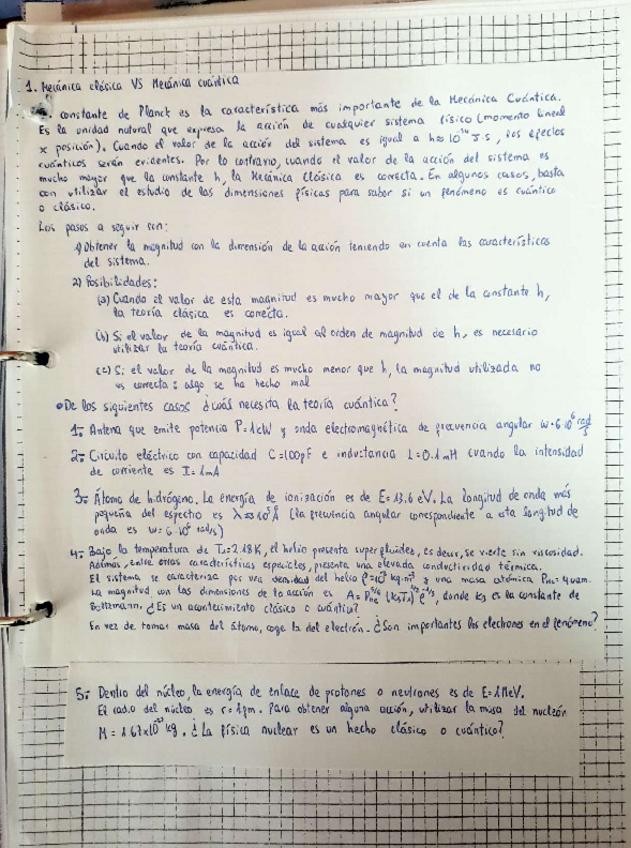 1. Mecánica clásica VS Mecánica cuántica
constante de Planck es la característica más importante de la Mecánica Cuántica.
Es la unidad natural que expresa la acción de cualquier sistema físico (momento lineal
x posición). Cuando el valor de la acción del sistema es igual a h≈10⁻³⁴ J·s, los efectos
cuánticos serán evidentes. Por lo contrario, cuando el valor de la acción del sistema es
mucho mayor que la constante h, la Mecánica Clásica es correcta. En algunos casos, basta
con utilizar el estudio de las dimensiones físicas para saber si un fenómeno es cuántico
o clásico.
Los pasos a seguir son:
1) Obtener la magnitud con la dimensión de la acción teniendo en cuenta las características
del sistema.
2) Posibilidades:
(a) Cuando el valor de esta magnitud es mucho mayor que el de la constante h,
la teoría clásica es correcta.
(b) Si el valor de la magnitud es igual al orden de magnitud de h, es necesario
utilizar la teoría cuántica.
(c) Si el valor de la magnitud es mucho menor que h, la magnitud utilizada no
es correcta: algo se ha hecho mal
• De los siguientes casos ¿cuál necesita la teoría cuántica?
1:- Antena que emite potencia P=1kW y onda electromagnética de frecuencia angular ω=6·10⁶ rad/s
2:- Circuito eléctrico con capacidad C=100pF e inductancia L=0.1mH cuando la intensidad
de corriente es I=1mA
3:- Átomo de hidrógeno. La energía de ionización es de E=13,6 eV. La longitud de onda más
pequeña del espectro es λ≈10³Å (la frecuencia angular correspondiente a esta longitud de
onda es ω=6·10 rad/s)
4:- Bajo la temperatura de Tλ=2.18K, el helio presenta superfluidez, es decir, se vierte sin viscosidad.
Además, entre otras características especiales, presenta una elevada conductividad térmica.
El sistema se caracteriza por una densidad del helio ρ=10² kg·m⁻³ y una masa atómica
La magnitud con las dimensiones de la acción es (kBTλ)^1/2 ρ^-1/3, donde kB es la constante de
Boltzmann. ¿Es un acontecimiento clásico o cuántico?
En vez de tomar masa del átomo, coge la del electrón. ¿Son importantes los electrones en el fenómeno?
5:- Dentro del núcleo, la energía de enlace de protones o neutrones es de E=1MeV.
El radio del núcleo es r=1fm. Para obtener alguna acción, utilizar la masa del nucleón
M=1.67x10⁻²⁷ kg. ¿La física nuclear es un hecho clásico o cuántico?